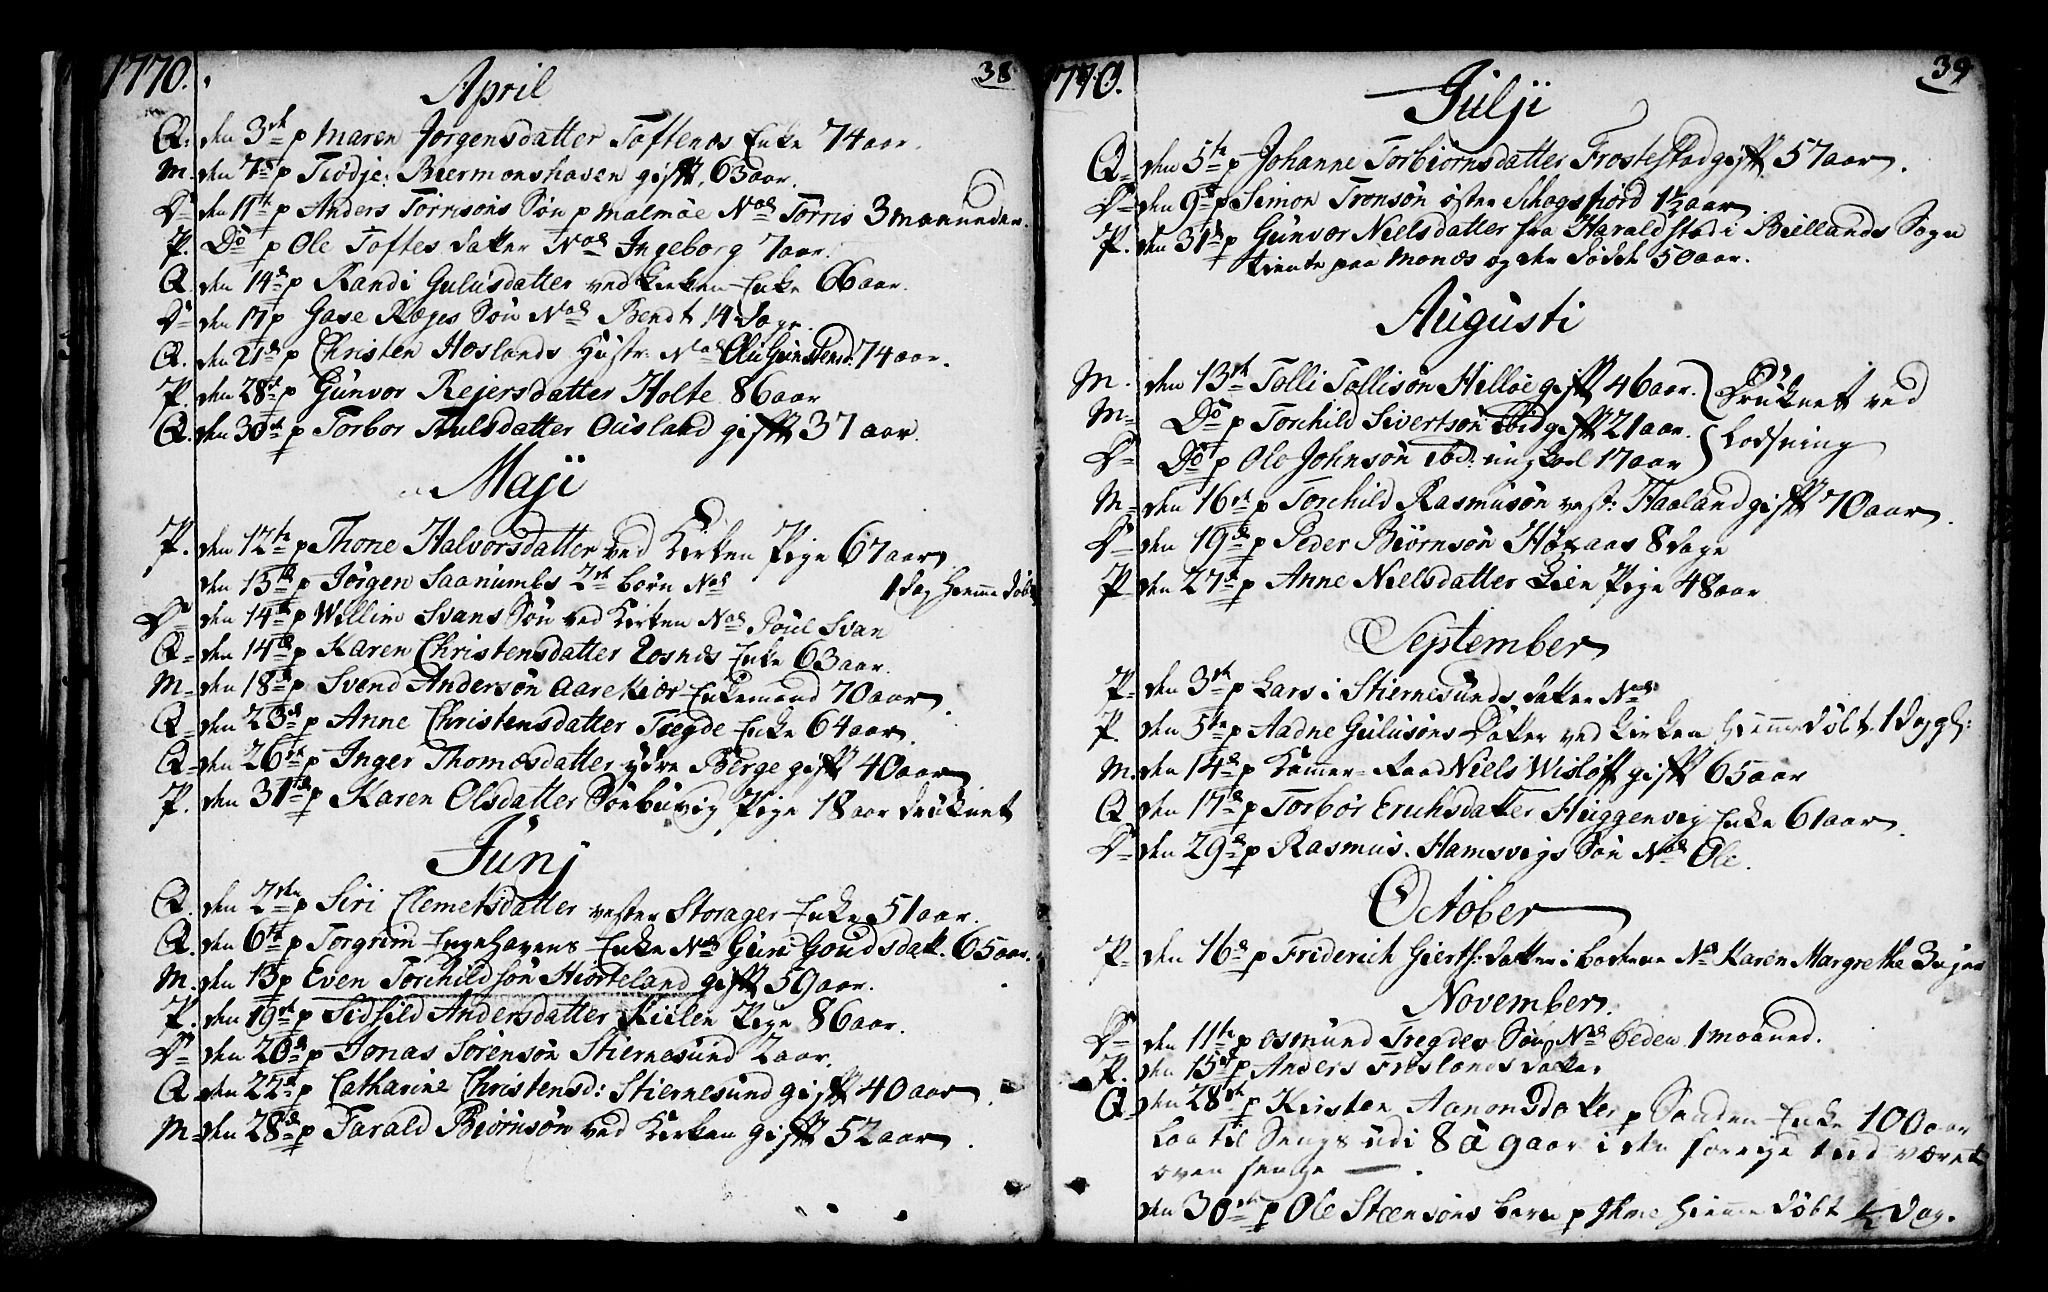 1770.
38
April
Q. den 3die p Maren Jørgensdatter Toftenes Enke 74 aar.
M. den 7de p Tiødje Biermonshaven gift. 63 aar.
D= den 11te p Anders Torrisøns Søn p Malmøe Nas Torris 3 maaneder.
P. Do p Ole Toftes datter Nas Ingeborg 7 aar.
Q. den 14de p Randi Gulusdatter ved Kirken Enke 66 aar.
D= den 17 p Gase Søn Nas Bendt 14 Dage.
Q. den 21de p Christen Hoslands Hustr: Nas 74 aar.
P. den 28de p Gunvor Rejersdatter Holte 86 aar
Q. den 30te p Torbor Thulsdatter Ousland gift 37 aar.
Maji
P. den 12te p Thone Halvorsdatter ved Kirken Pige 67 aar
den 13de p Jørgen Saanumbs 2de børn Nas 1 dag hjemme døbt
D= den 14de p Willim Svans Søn ved Kirken Nas Poul Svan
Q= den 14de p Karen Christensdatter Rosnæs Enke 63 aar.
M= den 18de p Svend Andersøn Aarekior Enkemand 70 aar.
Q= den 23de p Anne Christensdatter Tregde Enke 64 aar.
Q= den 26de p Inger Thomæsdatter ydre Berge gift 40 aar
P. den 31te p Karen Olsdatter Sønbuvig Pige 18 aar druknet
Junj
Q. den 2den p Siri Clemetsdatter vester Storager Enke 51 aar.
Q. den 6te p Torgrim Engehavens Enke Nas Guri Goudsdatt. 65 aar.
M. den 13 p Even Torchildsøn Hiorteland gift 59 aar.
P. den 19de p Sidsild Andersdatter Kiilen Pige 86 aar.
D= den 20de p Jonas Sørensøn Stiernesund 2 aar.
Q. den 22de p Catharine Christensd: Stiernesund gift 40 aar
M= den 28de p Tarald Biørnsøn ved Kirken gift 52 aar.
1770.
39
Julji
Q= den 5te p Johanne Torbiørnsdatter Frostestad gift 57 aar.
D= den 9de p Simon Tronsøn øster Schogsfiord 1½ aar
P. den 31te p Gunvor Nielsdatter fra Haraldstad i Biellands Sogn
tiente paa Monæs og der døde 50 aar.
Augusti
M. den 13de p Tolli Tollisøn Hilløe gift 46 aar. Druknet ved
M= Do p Torchild Sivertsøn ibid gift 21 aar.
Lodsning
D= Do p Ole Johnsøn ibd: ungkarl 17 aar
M= den 16de p Torchild Rasmusøn vest: Haaland gift 70 aar.
D= den 19de p Peder Biørnsøn Hønaas 8 dage
P= den 27de p Anne Nielsdatter Lien Pige 48 aar
September
P= den 3die p Lars i Stiernesunds datter Nas
P. den 5te p Aadne Gulusøns Datter ved Kirken hiemmedøbt. 1 dag gl:
M. den 14de p Kammer-Raad Niels Wisløff gift 65 aar
Q. den 17de p Torbor Erichsdatter Huggenvig Enke 61 aar.
D= den 29de p Rasmus Hamsvigs Søn Nas Ole.
October
P= den 16de p Friderich Gierts: datter i Na Karen Margrethe 3 uger
November.
D= den 11te p Osmund Tregdes Søn Nas Eeden 1 moaned.
P. den 15de p Anders Frøslands datter
Q= den 28de p Kirsten Aanonsdatter p Sanden Enke 100 aar
laa til Sengs udi 8 à 9 aar i den forrige tiid været
oven senge.
den 30te p Ole Steensøns barn p Ihme hiemmedøbt ½ dag.